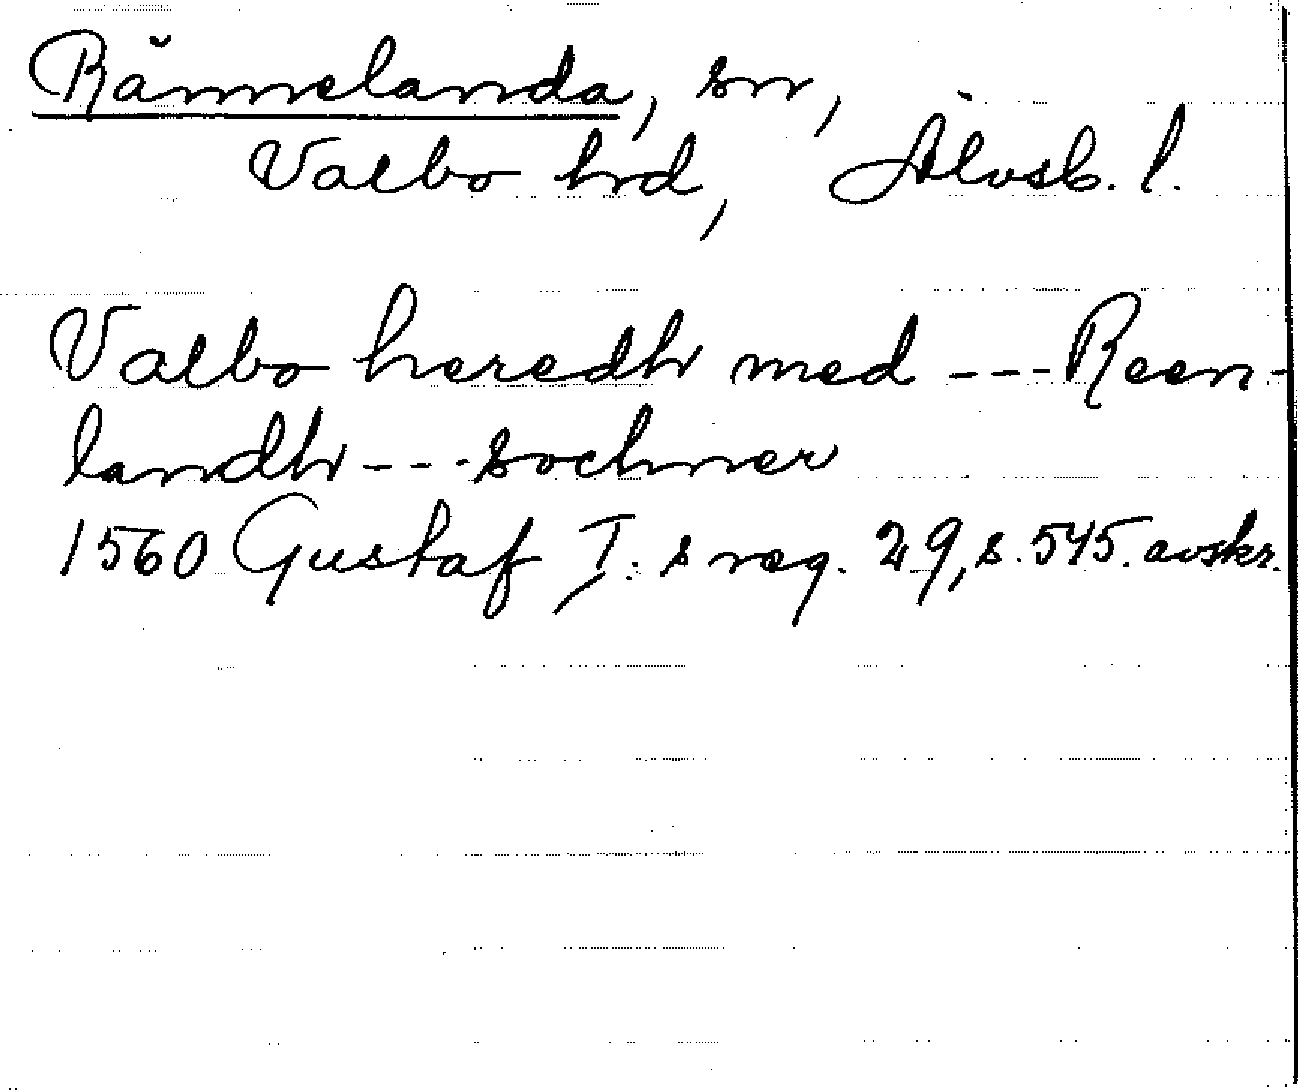 Rännelanda, sn,
Valbo hrd, Älvsb. l.
Valbo heredh med --- Reen-
landh --- sochner
1560 Gustaf I:s reg. 29, s. 545. avskr.